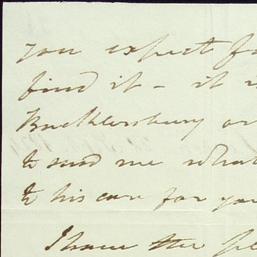 you expect fo
find it - it
Bucklersbury or
to send me what
to his care for you
I have the